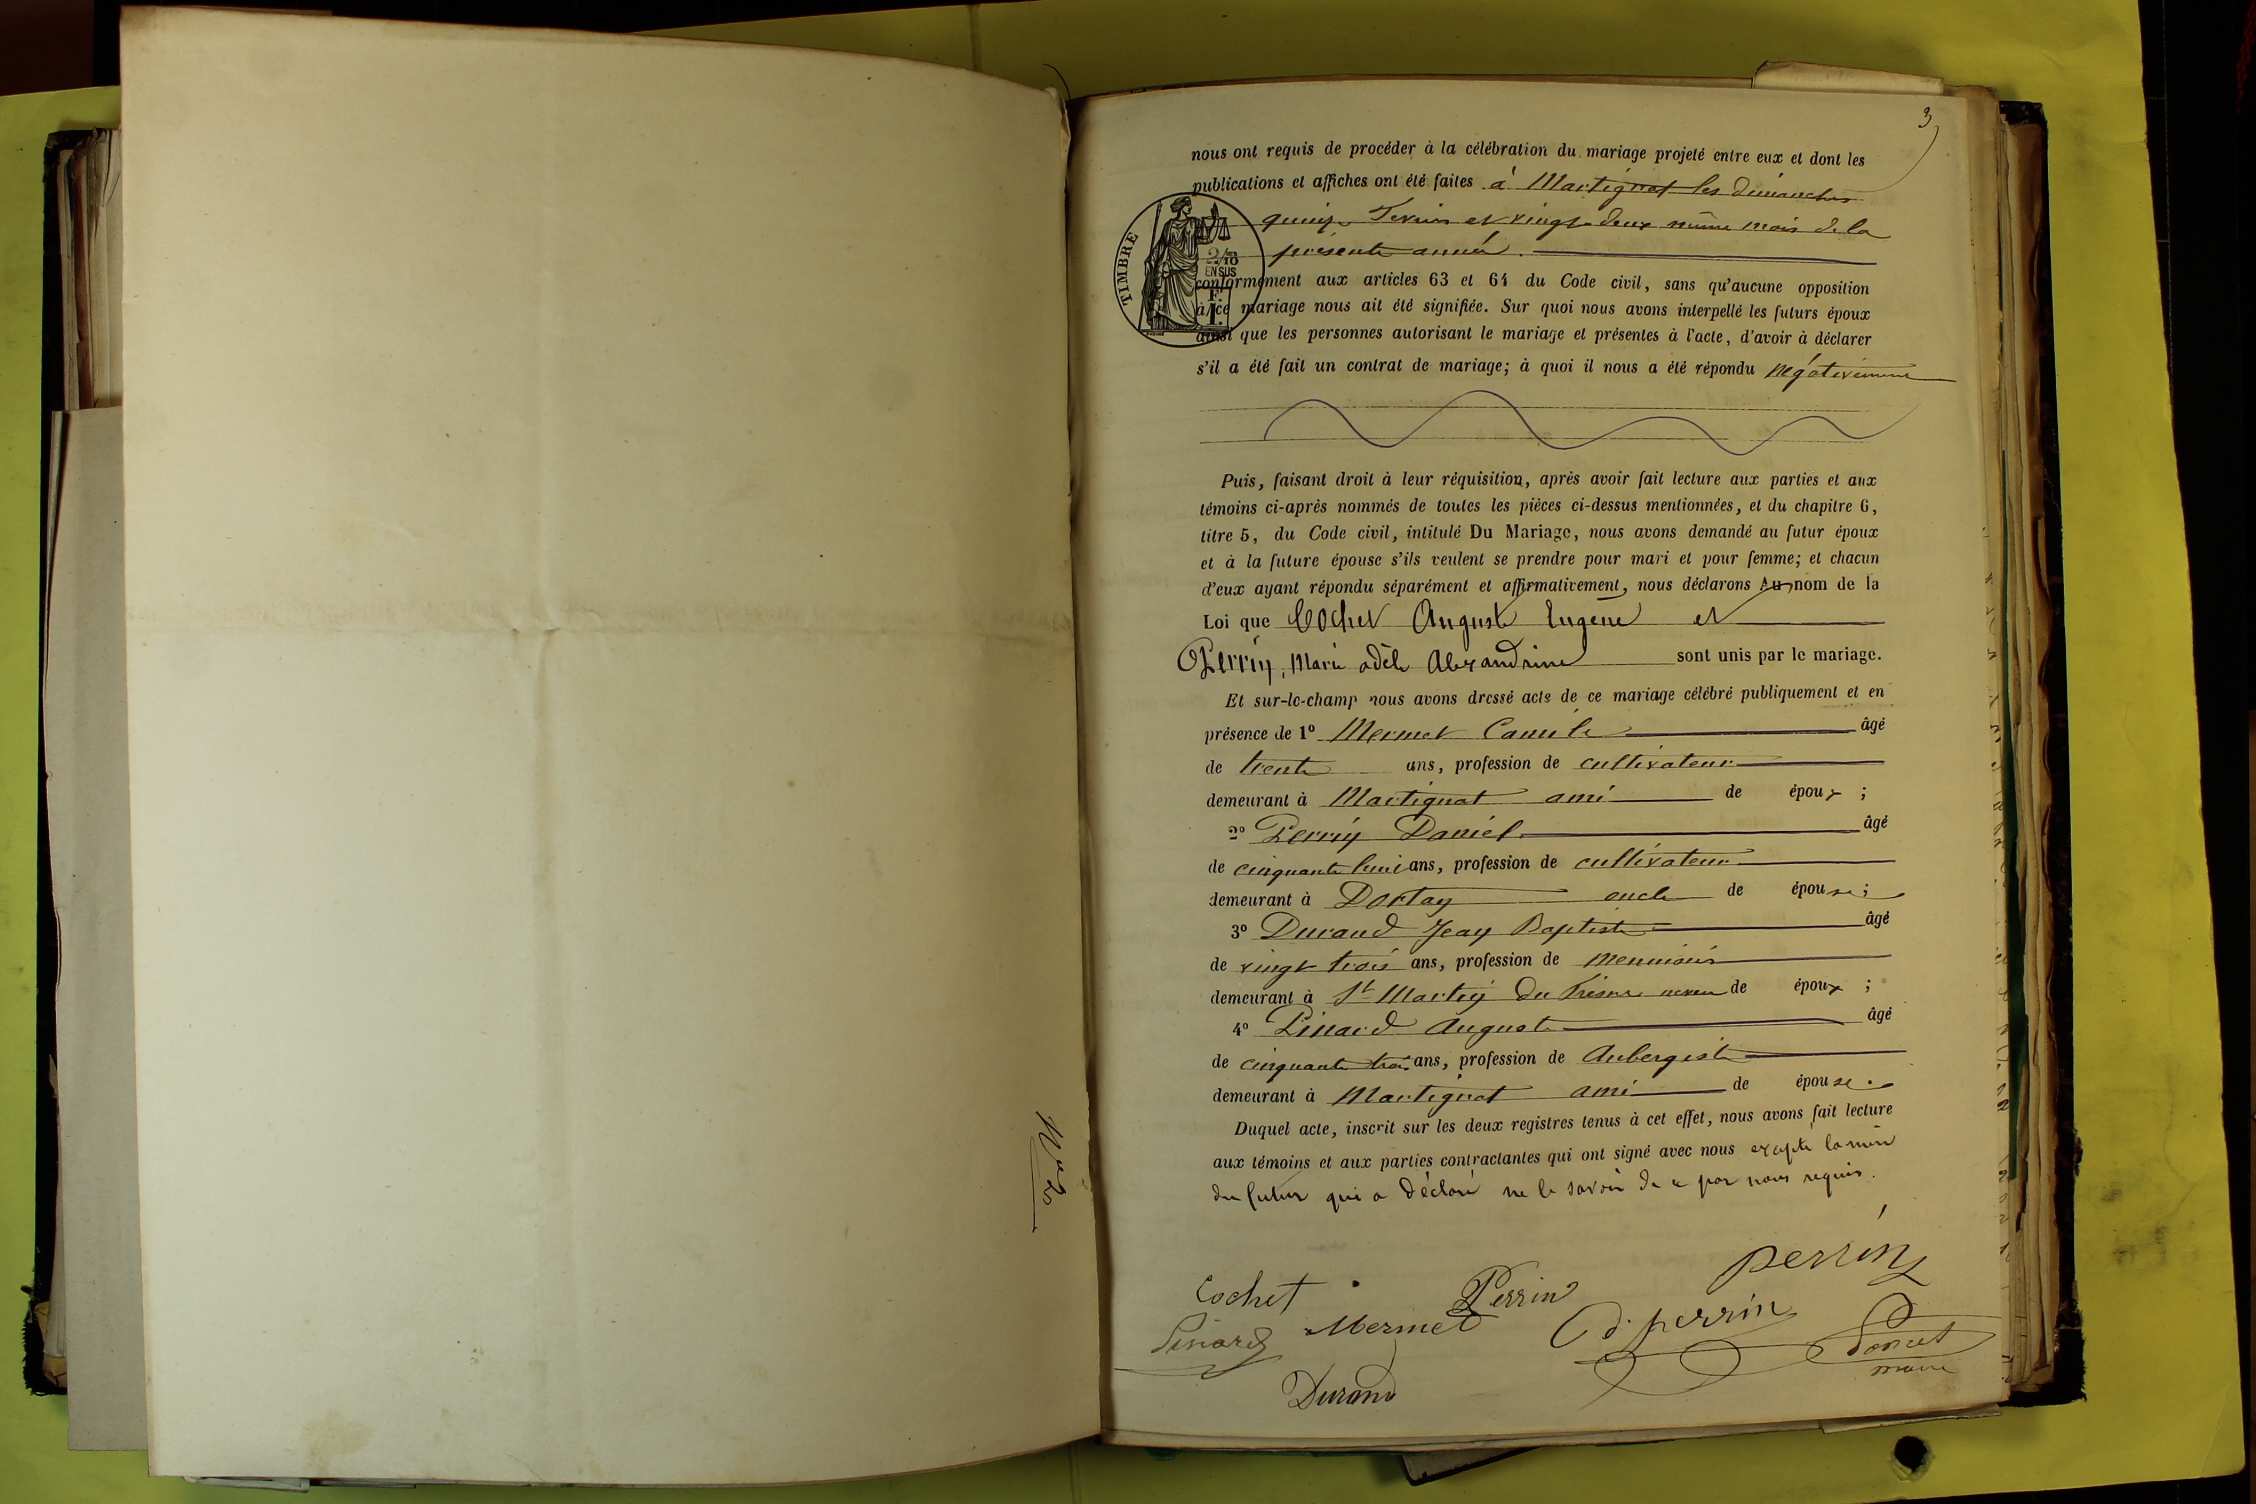 3
nous ont requis de procéder à la célébration du mariage projeté entre eux et dont les
publications et affiches ont été faites à Martignat les dimanches
quinze Fevrier et vingt-deux même mois de la
présente année.
TIMBRE
2/10
EN SUS
1 F.
conformément aux articles 63 et 64 du Code civil, sans qu'aucune opposition
à ce mariage nous ait été signifiée. Sur quoi nous avons interpellé les futurs époux
ainsi que les personnes autorisant le mariage et présentes à l'acte, d'avoir à déclarer
s'il a été fait un contrat de mariage; à quoi il nous a été répondu négativement
Puis, faisant droit à leur réquisition, après avoir fait lecture aux parties et aux
témoins ci-après nommés de toutes les pièces ci-dessus mentionnées, et du chapitre 6,
titre 5, du Code civil, intitulé Du Mariage, nous avons demandé au futur époux
et à la future épouse s'ils veulent se prendre pour mari et pour femme; et chacun
d'eux ayant répondu séparément et affirmativement, nous déclarons Au nom de la
Loi que Cochet Auguste Eugène et
Perrin, Marie adèle Alexandrine sont unis par le mariage.
Et sur-le-champ nous avons dressé acte de ce mariage célébré publiquement et en
présence de 1º Mermet Camile âgé
de trente ans, profession de cultivateur
demeurant à Martignat ami de époux ;
2º Perrin Daniel âgé
de cinquante huit ans, profession de cultivateur
demeurant à Dortan oncle de épouse ;
3º Durand Jean Baptiste âgé
de vingt trois ans, profession de menuisier
demeurant à St Martin du Frêsne neveu de époux ;
4º Pinard Auguste âgé
de cinquante trois ans, profession de Aubergiste
demeurant à Martignat ami de épouse.
Duquel acte, inscrit sur les deux registres tenus à cet effet, nous avons fait lecture
aux témoins et aux parties contractantes qui ont signé avec nous excepté la mère
du futur qui a déclaré ne le savoir de ce par nous requis.
Cochet Perrin perrin
Pinard Mermet d. perrin Poncet
maire
Durand